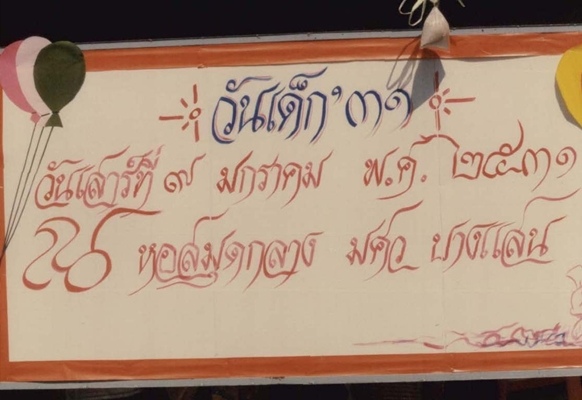 วันเด็ก'๓๑
วันเสาร์ที่ ๙ มกราคม พ.ศ. ๒๕๓๑
ณ หอสมุดกลาง มศว บางแสน